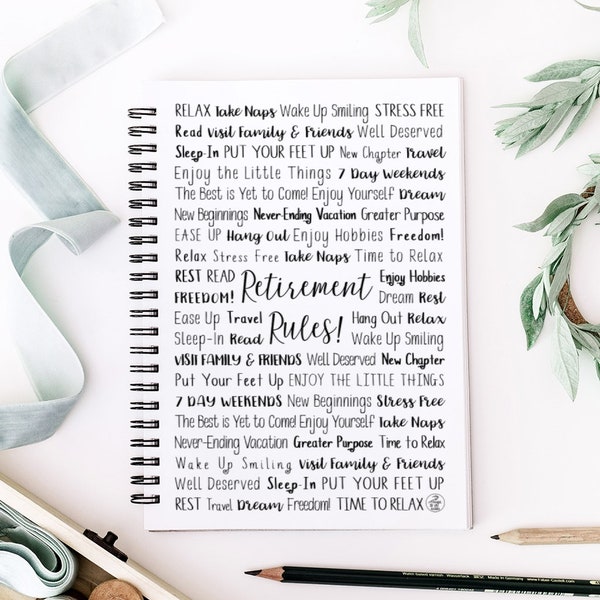 RELAX Take Naps Wake Up Smiling STRESS FREE
Read Visit Family & Friends Well Deserved
Sleep-In PUT YOUR FEET UP New Chapter Travel
Enjoy the Little Things 7 Day Weekends
The Best is Yet to Come! Enjoy Yourself Dream
New Beginnings Never-Ending Vacation Greater Purpose
EASE UP Hang Out Enjoy Hobbies Freedom!
Relax Stress Free Take Naps Time to Relax
REST READ
FREEDOM!
Retirement
Enjoy Hobbies
Dream Rest
Ease Up Travel
Sleep-In Read
Rules!
Hang Out Relax
Wake Up Smiling
VISIT FAMILY & FRIENDS Well Deserved New Chapter
Put Your Feet Up ENJOY THE LITTLE THINGS
7 DAY WEEKENDS New Beginnings Stress Free
The Best is Yet to Come! Enjoy Yourself Take Naps
Never-Ending Vacation Greater Purpose Time to Relax
Wake Up Smiling Visit Family & Friends
Well Deserved Sleep-In PUT YOUR FEET UP
REST Travel Dream Freedom! TIME TO RELAX